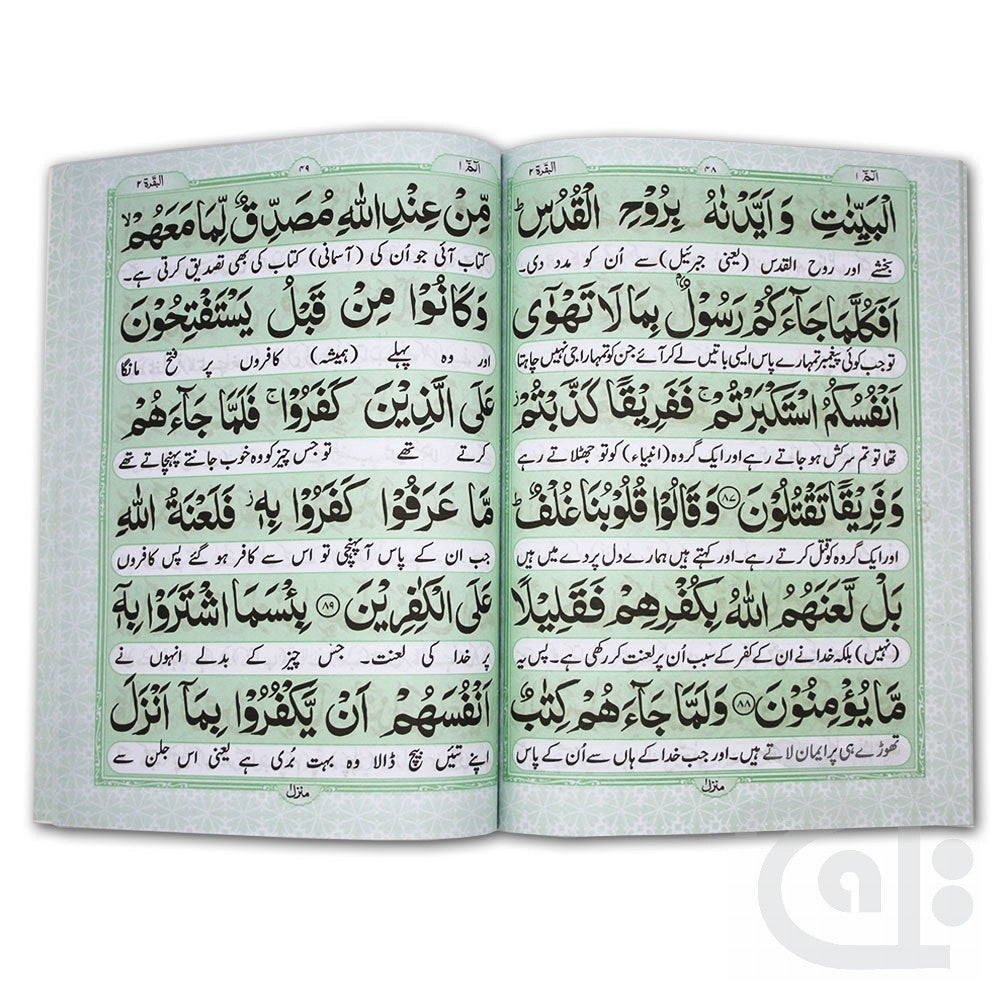 الٓمّٓ ۱
۴۸
البقرة ۲
الْبَيِّنٰتِ وَاَيَّدْنٰهُ بِرُوْحِ الْقُدُسِ ؕ
بخشے اور روح القدس (یعنی جبرئیل) سے اُن کو مدد دی۔
اَفَكُلَّمَا جَآءَكُمْ رَسُوْلٌۢ بِمَا لَا تَهْوٰٓى
تو جب کوئی پیغمبر تمہارے پاس ایسی باتیں لے کر آئے جن کو تمہارا جی نہیں چاہتا
اَنْفُسُكُمُ اسْتَكْبَرْتُمْ ۚ فَفَرِيْقًا كَذَّبْتُمْ ؗ
تھا تو تم سرکش ہو جاتے رہے اور ایک گروہ (انبیاء) کو تو جھٹلاتے رہے
وَفَرِيْقًا تَقْتُلُوْنَ ۸۷ وَقَالُوْا قُلُوْبُنَا غُلْفٌ ؕ
اور ایک گروہ کو قتل کرتے رہے۔ اور کہتے ہیں ہمارے دل پردے میں ہیں
بَلْ لَّعَنَهُمُ اللّٰهُ بِكُفْرِهِمْ فَقَلِيْلًا
(نہیں) بلکہ خدا نے ان کے کفر کے سبب اُن پر لعنت کر رکھی ہے۔ پس یہ
مَّا يُؤْمِنُوْنَ ۸۸ وَلَمَّا جَآءَهُمْ كِتٰبٌ
تھوڑے ہی پر ایمان لاتے ہیں۔ اور جب خدا کے ہاں سے اُن کے پاس
منزل ۱
الٓمّٓ ۱
۴۹
البقرة ۲
مِّنْ عِنْدِ اللّٰهِ مُصَدِّقٌ لِّمَا مَعَهُمْ ۙ
کتاب آئی جو اُن کی (آسمانی) کتاب کی بھی تصدیق کرتی ہے۔
وَكَانُوْا مِنْ قَبْلُ يَسْتَفْتِحُوْنَ
اور وہ پہلے (ہمیشہ) کافروں پر فتح مانگا
عَلَى الَّذِيْنَ كَفَرُوْا ۚ فَلَمَّا جَآءَهُمْ
کرتے تھے تو جس چیز کو وہ خوب جانتے پہچانتے تھے
مَّا عَرَفُوْا كَفَرُوْا بِهٖ ؗ فَلَعْنَةُ اللّٰهِ
جب ان کے پاس آ پہنچی تو اس سے کافر ہو گئے پس کافروں
عَلَى الْكٰفِرِيْنَ ۸۹ بِئْسَمَا اشْتَرَوْا بِهٖٓ
پر خدا کی لعنت۔ جس چیز کے بدلے انہوں نے
اَنْفُسَهُمْ اَنْ يَّكْفُرُوْا بِمَآ اَنْزَلَ
اپنے تئیں بیچ ڈالا وہ بہت بُری ہے یعنی اس جلن سے
منزل ۱